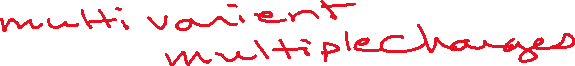 multi varient
multiplecharges